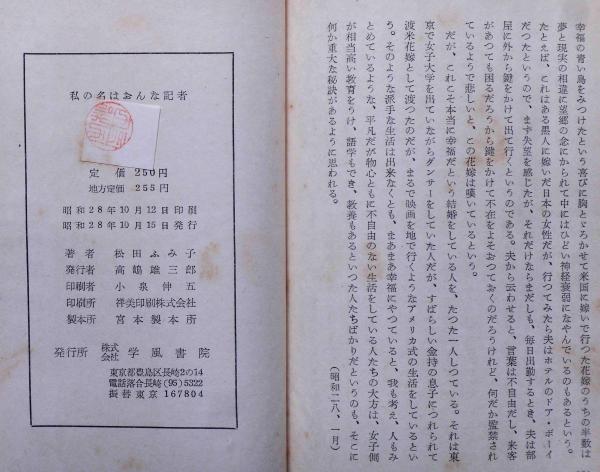 幸福の青い鳥をみつけたという喜びに胸とゞろかせて米国に嫁いで行つた花嫁のうちの半数は
夢と現実の相違に望郷の念にかられて中にはひどい神経衰弱になやんでいるのもあるという。
たとえば、これはある黒人に嫁いだ日本の女性だが、行つてみたら夫はホテルのドア・ボーイ
だつたというので、まず失望を感じたが、それだけならまだしも、毎日出勤するとき、夫は部
屋に外から鍵をかけて出て行くというのである。夫から云わせると、言葉は不自由だし、来客
があつても困るだろうから鍵をかけて不在をよそおつておくのだろうけれど、何だか監禁され
ているようで悲しいと、この花嫁は嘆いているという。
だが、これこそ本当に幸福だという結婚をしている人を、たつた一人しつている。それは東
京で女子大学を出ていながらダンサーをしていた人だが、すばらしい金持の息子につれられて
渡米花嫁として渡つたのだが、まるで映画を地で行くようなアメリカ式の生活をしているとい
う。そのような派手な生活は出来なくとも、まあまあ幸福にやつていると、我も考え、人もみ
とめているような、平凡だが物心ともに不自由のない生活をしている人たちの大方は、女子側
が相当高い教育をうけ、語学もでき、教養もあるといつた人たちばかりだというのも、そこに
何か重大な秘訣があるように思われる。
(昭和二八、一月)
私の名はおんな記者
定価250円
地方定価 255円
昭和28年10月12日印刷
昭和28年10月15日発行
著者 松田ふみ子
発行者 高嶋雄三郎
印刷者 小泉伸五
印刷所 祥美印刷株式会社
製本所 宮本製本所
発行所 株式会社 学風書院
東京都豊島区長崎2の14
電話落合長崎(95)5322
振替東京167804